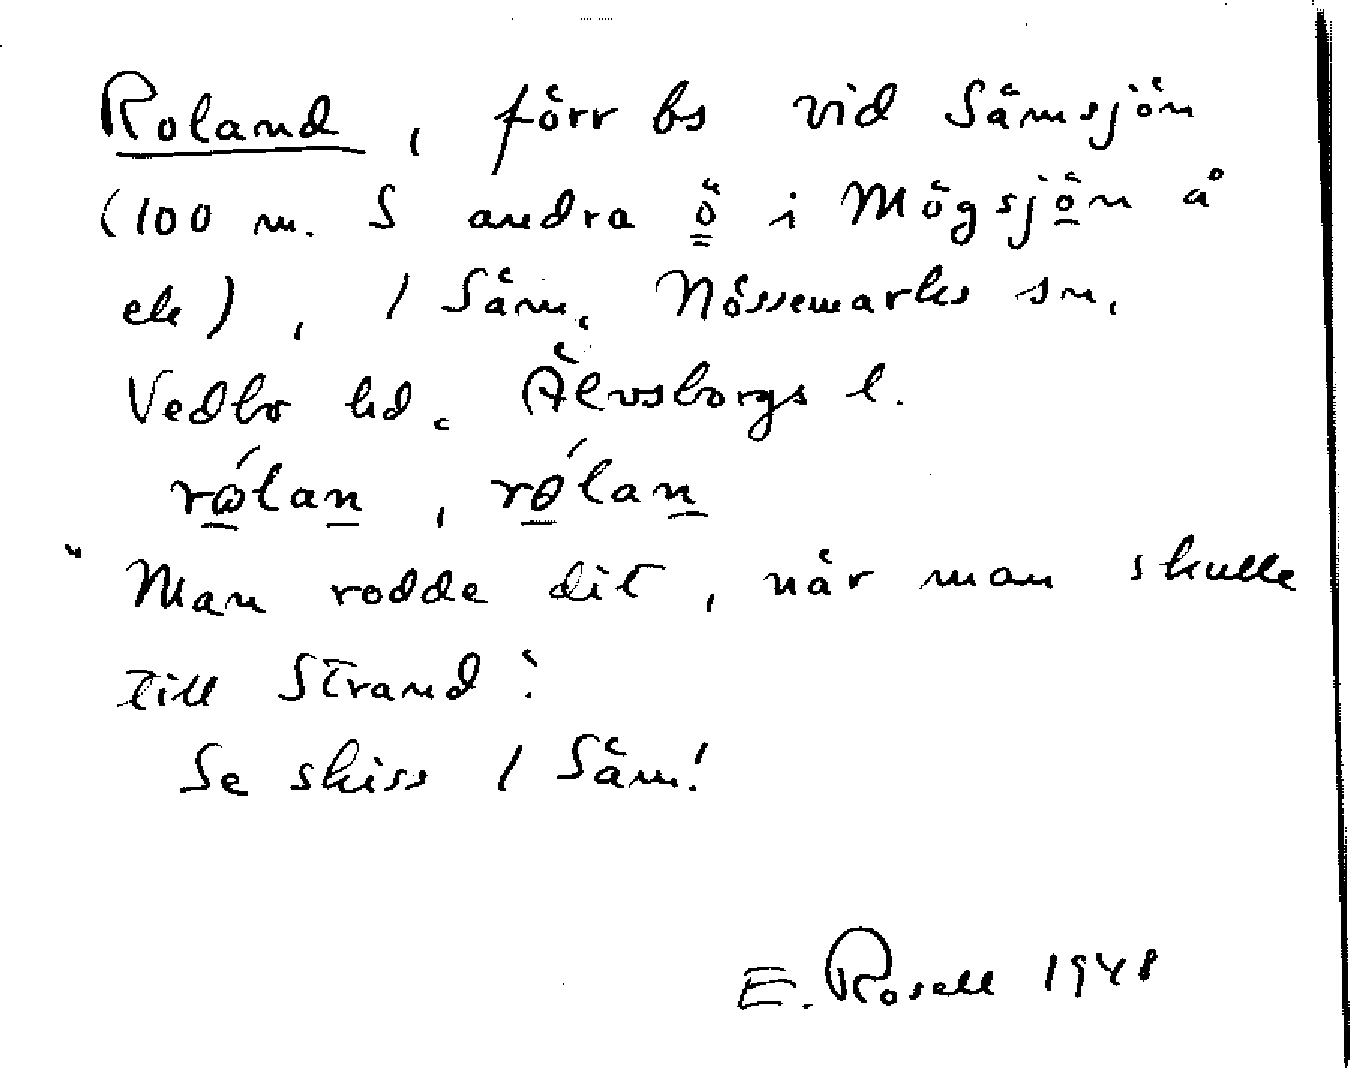 Roland, förr bs vid Sämsjön
(100 m. S andra ö i Mögsjön å
ek), / Säm, Nössemarks sn,
Vedbo hd. Älvsborgs l.
rólan, rǿlan
"Man rodde dit, när man skulle
till Strand".
Se skiss / Säm!
E. Rosell 1948